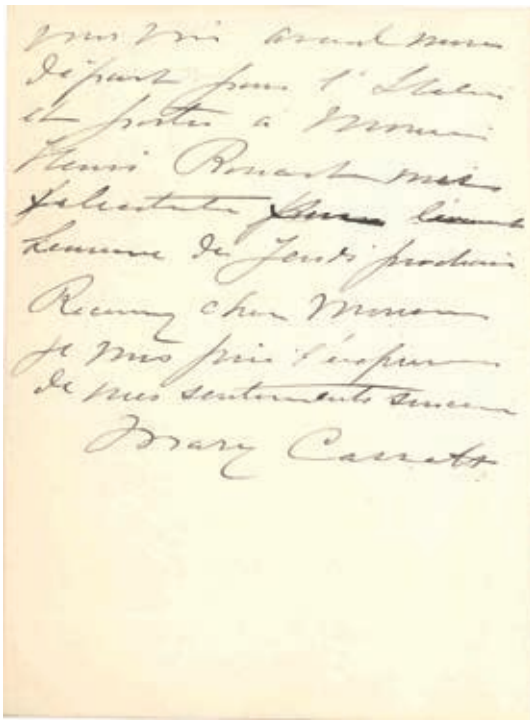 vous voir avant mon
départ pour l'Italie
et porter à Monsieur
Henri Rouart mes
félicitations pour
heureux de Jeudi prochain
Recevez cher Monsieur
je vous prie l'expression
de mes sentiments sincères
Mary Cassatt